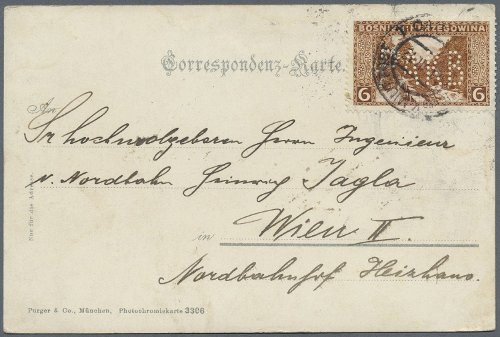 BOSNIEN HERZEGOWINA
6 6
Correspondenz-Karte.
An
Sr hochwolgeboren Herrn Ingenieur
v. Nordbahn Heinrich Jagla
in Wien II.
Nordbahnhof Heizhaus.
Nur für die Adresse
Purger & Co., München, Photochromiekarte 3306